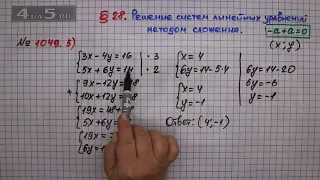 4 на 5.
§ 28. Решение систем линейных уравнений
методом сложения.
-a+a=0
(x;y)
№ 1049. 5)
{3x-4y=16 | · 3
{5x+6y=14 | · 2
+ {9x-12y=48
{10x+12y=28
{19x=
{5x+6y=
{19x=
{6y=1
{x=4
{6y=14-5·4
{x=4
{y=-1
6y=14-20
6y=-6
y=-1
Ответ: (4;-1)